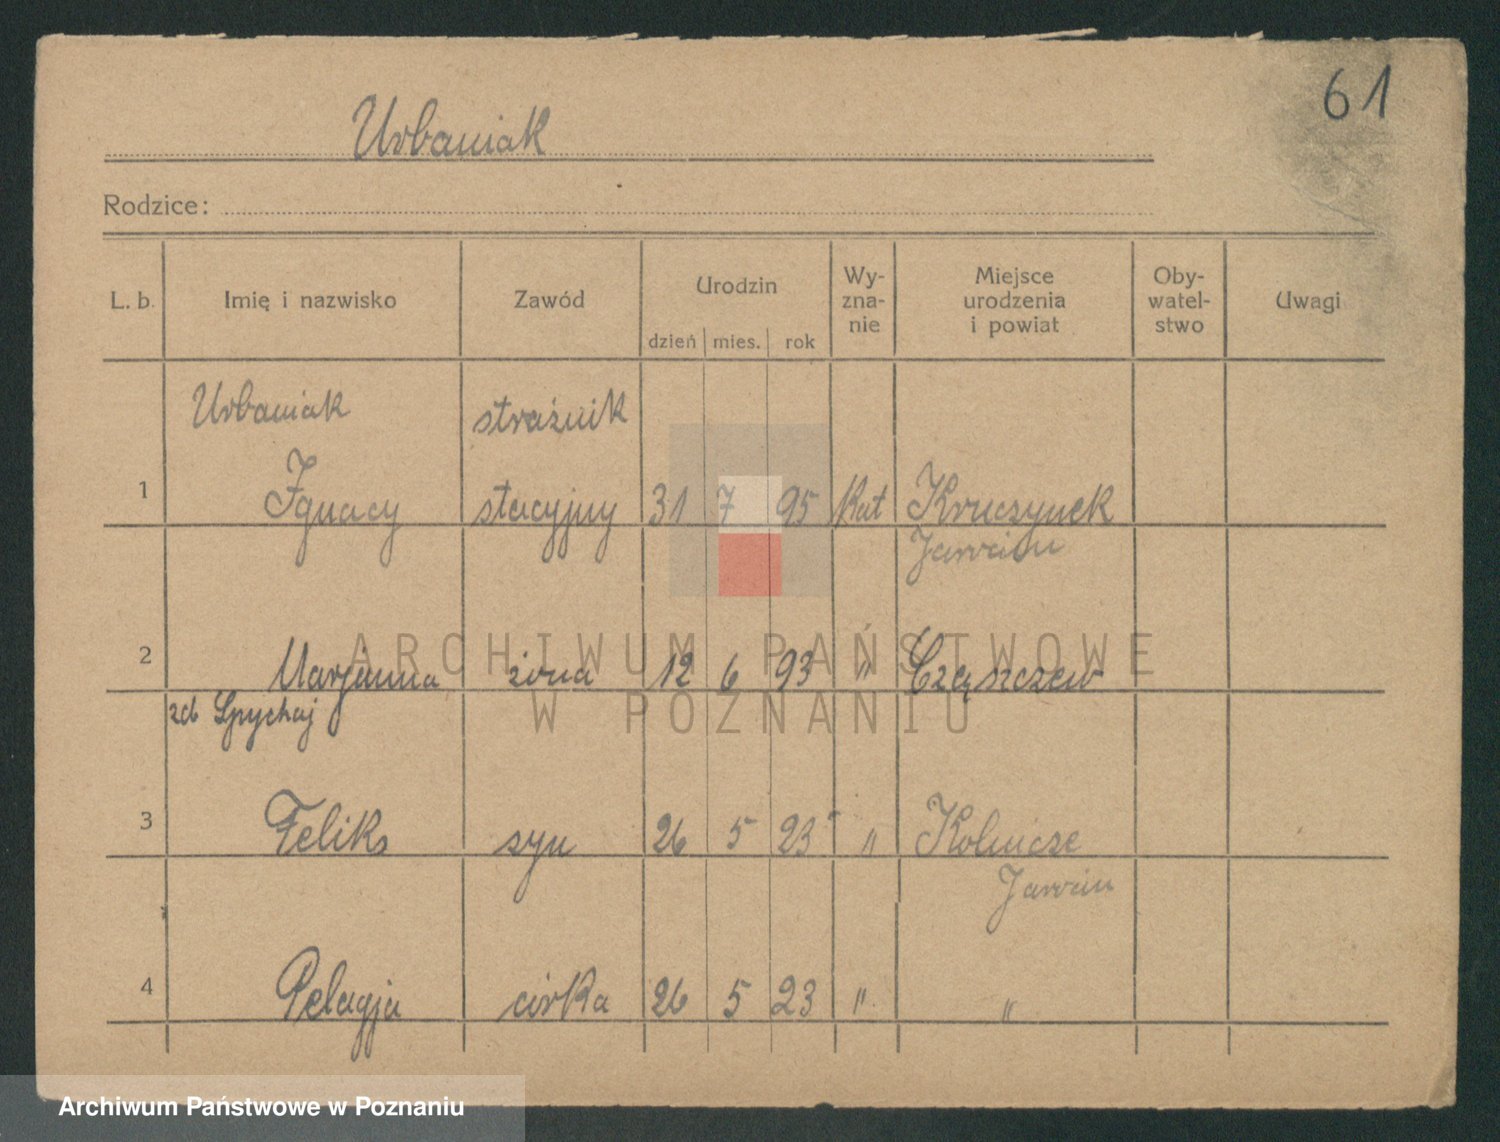 61
Urbaniak
Rodzice:
L. b. Imię i nazwisko Zawód Urodzin dzień mies. rok Wy-zna-nie Miejsce urodzenia i powiat Oby-watel-stwo Uwagi
Urbaniak strażnik
1 Ignacy stacyjny 31 7 95 Kat Kruczynek
Jarocin
2 Marjanna żona 12 6 93 " Cząszczew
zd Spychaj
3 Feliks syn 26 5 23 " Kolnicze
Jarocin
4 Pelagja córka 26 5 23 " "
ARCHIWUM PAŃSTWOWE
W POZNANIU
Archiwum Państwowe w Poznaniu